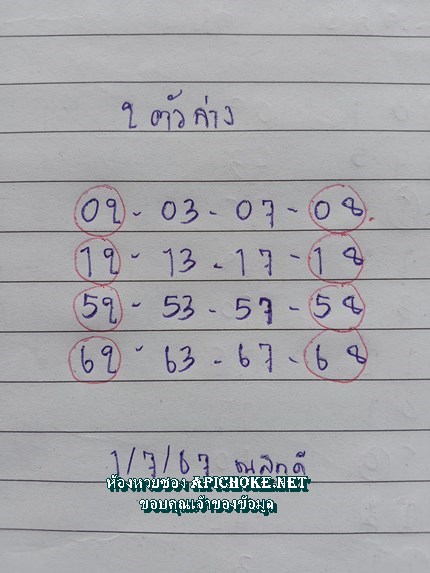 2 ตัวล่าง
02 - 03 - 07 - 08.
12 - 13 - 17 - 18
52 - 53 - 57 - 58
62 - 63 - 67 - 68
1/7/67
ห้องหวยซอง APICHOKE.NET
ขอบคุณเจ้าของข้อมูล